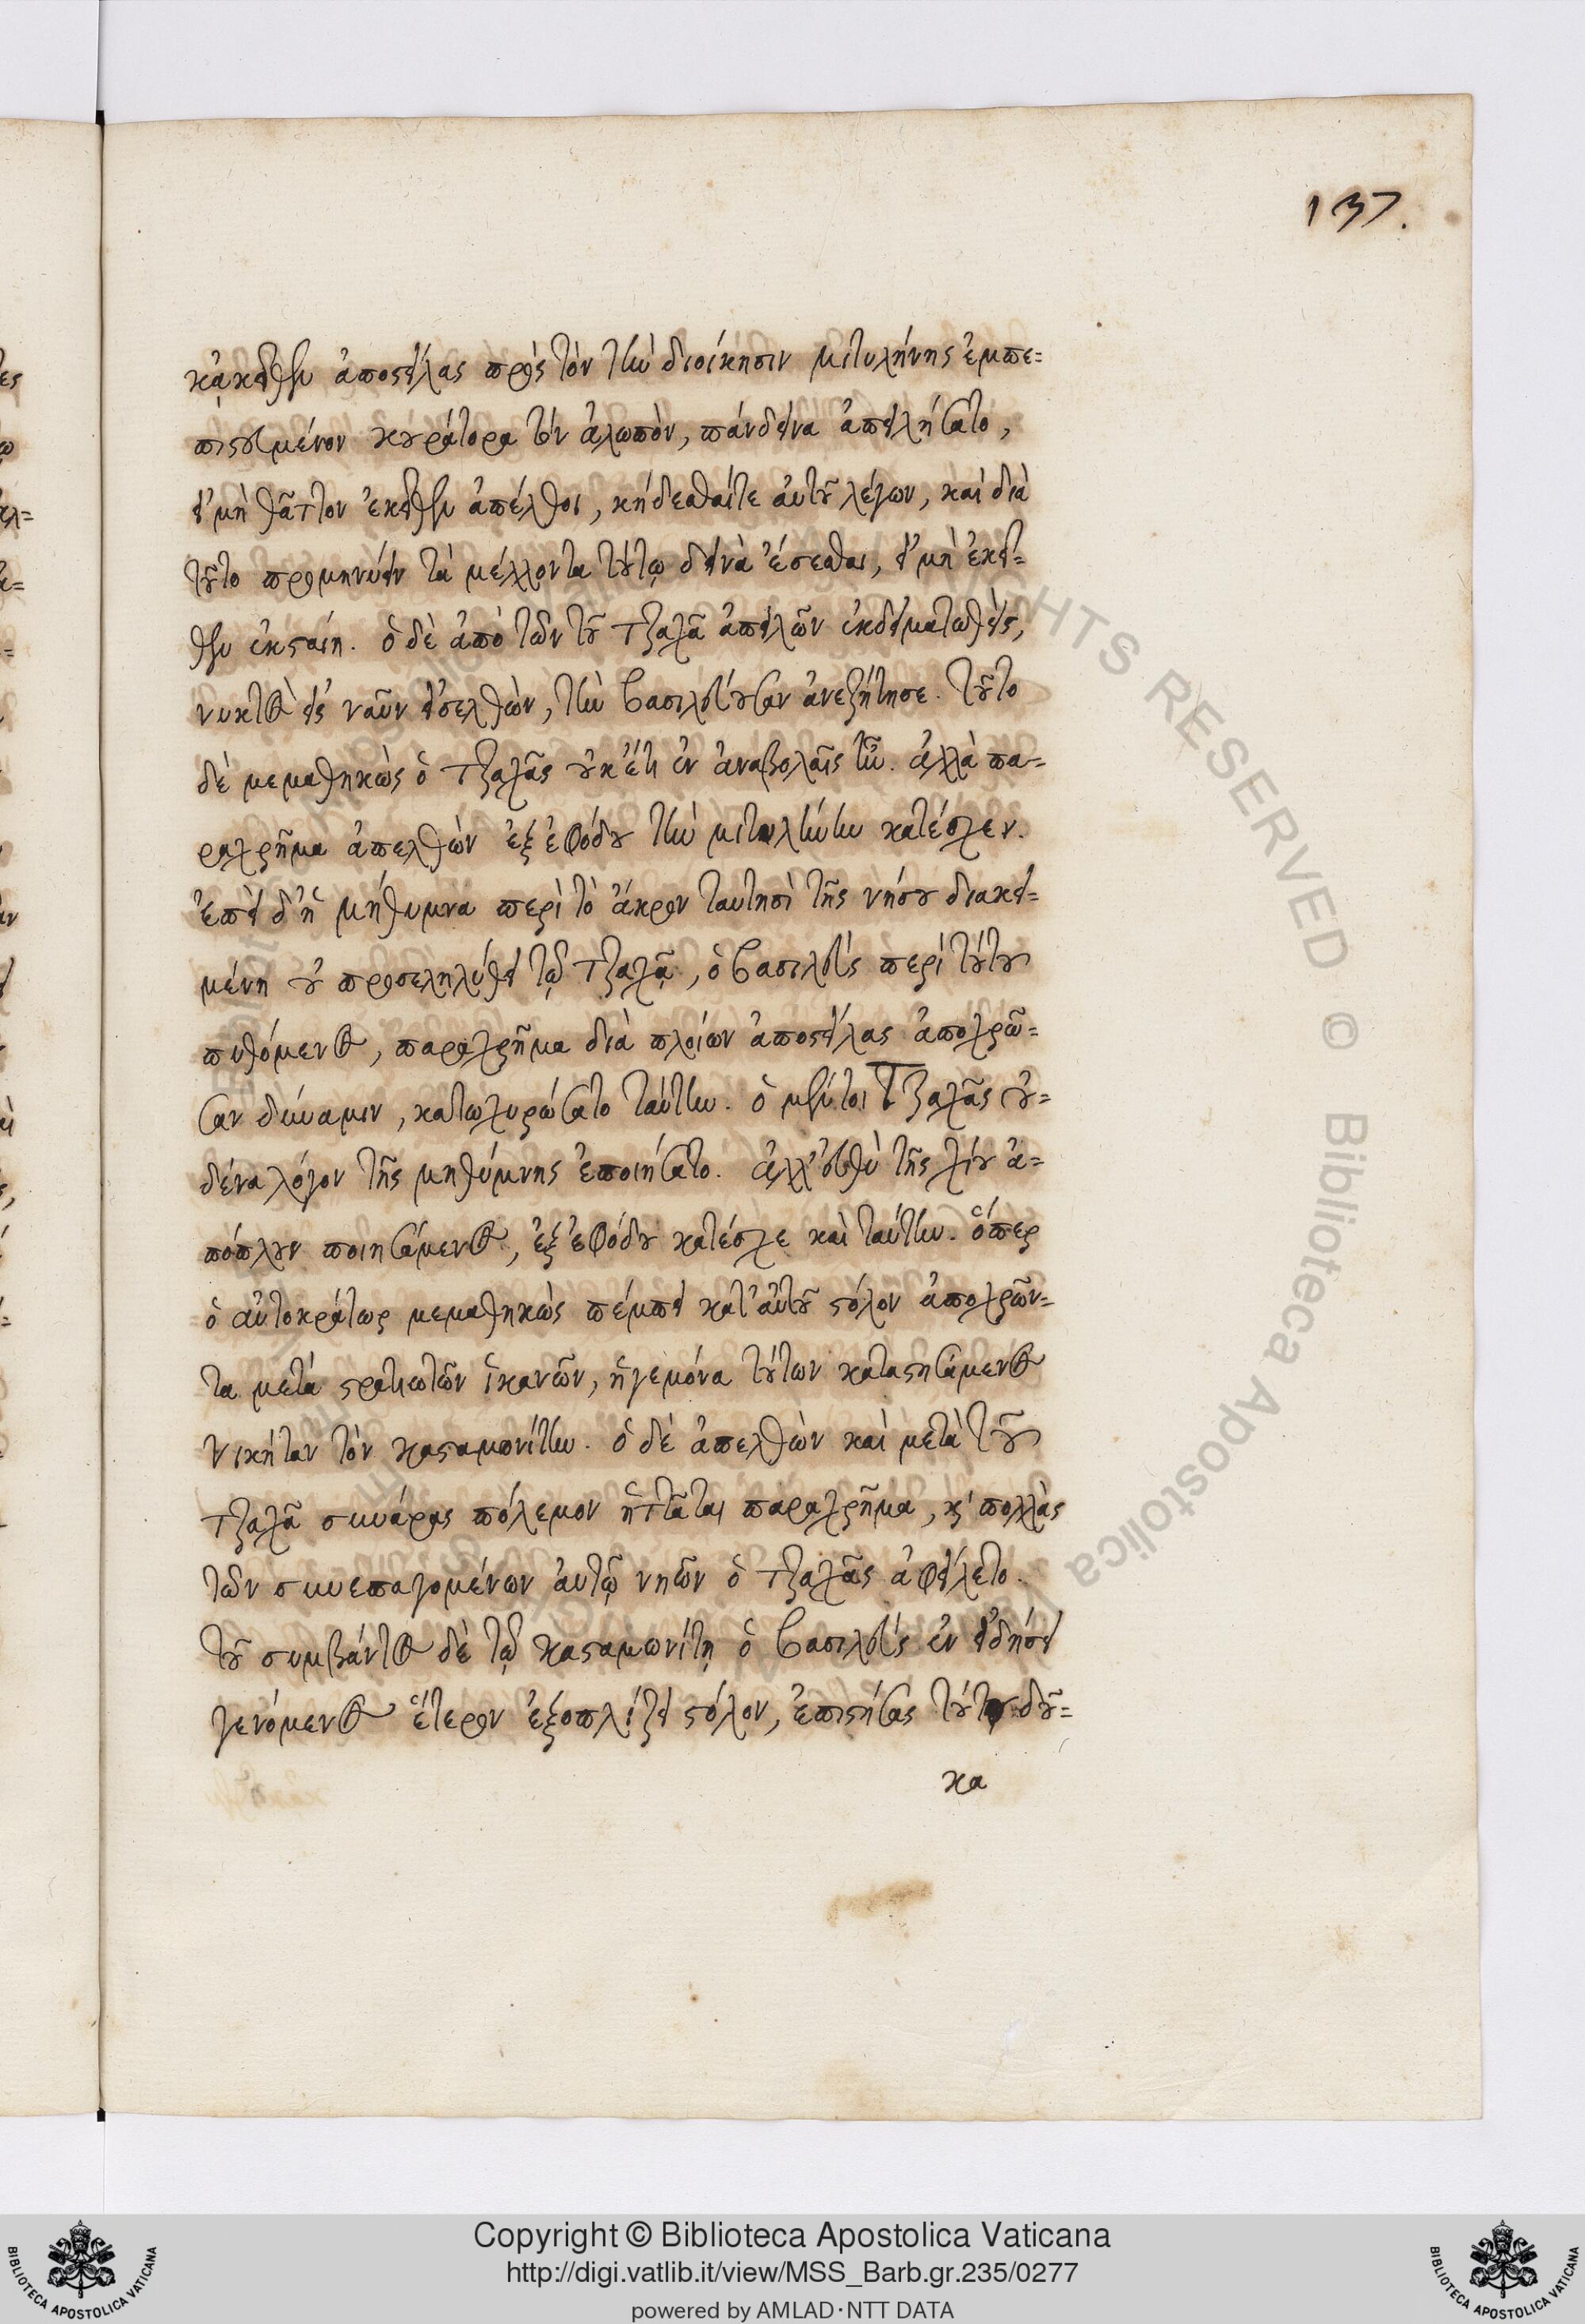 137.
κἀκεῖθεν ἀποστείλας πρὸς τὸν τὴν διοίκησιν μιτυλήνης ἐμπε=
πιστευμένον κουράτορα τὸν ἀλωπὸν, πάνδεινα ἀπειλήσατο,
εἰ μὴ θᾶττον ἐκεῖθεν ἀπέλθοι, κήδεσθαίτε αὐτοῦ λέγων, καὶ διὰ
τοῦτο προμηνύειν τὰ μέλλοντα τούτῳ δεινὰ ἔσεσθαι, εἰ μὴ ἐκεῖ=
θεν ἐκσταίη. ὁ δὲ ἀπὸ τῶν τοῦ τζαχᾶ ἀπειλῶν ἐκδειματωθεὶς,
νυκτὸς εἰς ναῦν εἰσελθὼν, τὴν βασιλεύουσαν ἀνεζήτησε. τοῦτο
δὲ μεμαθηκὼς ὁ τζαχᾶς οὐκ έτι ἐν ἀναβολαῖς ἦν. ἀλλὰ πα=
ραχρῆμα ἀπελθὼν ἐξ ἐφόδου τὴν μιτυλήνην κατέσχεν.
ἐπεὶ δ' ἡ μήθυμνα περὶ τὸ ἄκρον ταυτησὶ τῆς νήσου διακει=
μένη οὐ προσεληλύθει τῷ τζαχᾷ, ὁ βασιλεὺς περὶ τούτου
πυθόμενος, παραχρῆμα διὰ πλοίων ἀποστείλας ἀποχρῶ=
σαν δύναμιν, κατωχυρώσατο ταύτην. ὁ μέντοι Τζαχᾶς οὐ=
δένα λόγον τῆς μηθύμνης ἐποιήσατο. ἀλλ' εὐθὺ τῆς χίου ἀ=
πόπλουν ποιησάμενος, ἐξ ἐφόδου κατέσχε καὶ ταύτην. ὅπερ
ὁ αὐτοκράτωρ μεμαθηκὼς πέμπει κατ' αὐτοῦ στόλον ἀποχρῶν=
τα μετὰ στρατιωτῶν ἱκανῶν, ἡγεμόνα τούτων καταστησάμενος
νικήταν τὸν κασταμονίτην. ὁ δὲ ἀπελθὼν καὶ μετὰ τοῦ
τζαχᾶ συνάρας πόλεμον ἡττᾶται παραχρῆμα, κ' πολλὰς
τῶν συνεπαγομένων αὐτῷ νηῶν ὁ τζαχᾶς ἀφείλετο.
τοῦ συμβάντος δὲ τῷ κασταμωνίτῃ ὁ βασιλεὺς ἐν εἰδήσει
γενόμενος ἕτερον ἐξοπλίζει στόλον, ἐπιστήσας τούτου δοῦ=
κα
HTS RESERVED © Biblioteca Apostolica
BIBLIOTECA APOSTOLICA VATICANA
Copyright © Biblioteca Apostolica Vaticana
http://digi.vatlib.it/view/MSS_Barb.gr.235/0277
powered by AMLAD·NTT DATA
BIBLIOTECA APOSTOLICA VATICANA